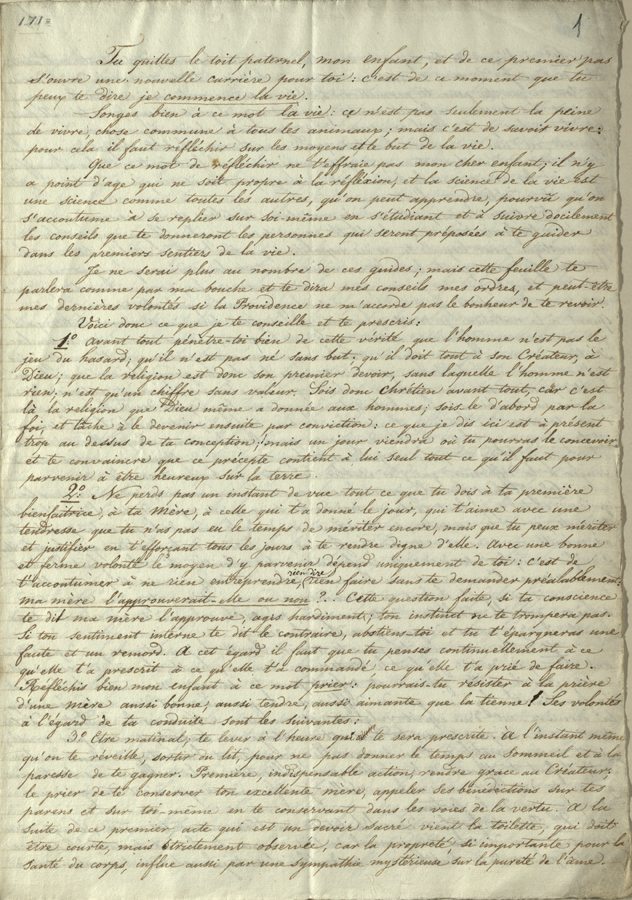 171
1
Tu quittes le toit paternel, mon enfant, et de ce premier pas
s'ouvre une nouvelle carrière pour toi: c'est de ce moment que tu
peux te dire je commence la vie.
Songes bien à ce mot la vie: ce n'est pas seulement la peine
de vivre, chose commune à tous les animaux; mais c'est de savoir vivre:
pour cela il faut réfléchir sur les moyens et le but de la vie.
Que ce mot de réfléchir ne t'effraie pas mon cher enfant; il n'y
a point d'age qui ne soit propre à la réfléxion, et la science de la vie est
une science comme toutes les autres, qu'on peut apprendre, pourvû qu'on
s'accoutume à se replier sur soi-même en s'étudiant et à suivre docilement
les conseils que te donneront les personnes qui seront préposées à te guider
dans les premiers sentiers de la vie.
Je ne serai plus au nombre de ces guides; mais cette feuille te
parlera comme par ma bouche et te dira mes conseils mes ordres, et peut-être
mes dernières volontés si la Providence ne m'accorde pas le bonheur de te revoir.
Voici donc ce que je te conseille et te prescris:
1.º Avant tout pénètre-toi bien de cette vérité que l'homme n'est pas le
jeu du hasard; qu'il n'est pas né sans but; qu'il doit tout à son Créateur, à
Dieu; que la religion est donc son premier devoir, sans laquelle l'homme n'est
rien, n'est qu'un chiffre sans valeur. Sois donc chrétien avant tout, car c'est
là la religion que Dieu même a donnée aux hommes; sois le d'abord par la
foi, et tâche à le devenir ensuite par conviction: ce que je dis ici est à présent
trop au dessus de ta conception; mais un jour viendra où tu pourras le concevoir
et te convaincre que ce précepte contient à lui seul tout ce qu'il faut pour
parvenir à être heureux sur la terre.
2.º Ne perds pas un instant de vue tout ce que tu dois à ta première
bienfaitrice, à ta Mère, à celle qui t'a donné le jour, qui t'aime avec une
tendresse que tu n'as pas eu le temps de mériter encore, mais que tu peux mériter
et justifier en t'efforçant tous les jours à te rendre digne d'elle. Avec une bonne
et ferme volonté le moyen d'y parvenir dépend uniquement de toi: c'est de
t'accoutumer à ne rien entreprendre, rien dire, rien faire sans te demander préalablement:
ma mère l'approuverait-elle ou non?... Cette question faite, si ta conscience
te dit ma mère l'approuve, agis hardiment; ton instinct ne te trompera pas.
Si ton sentiment interne te dit le contraire, abstiens-toi et tu t'épargneras une
faute et un remord. A cet égard il faut que tu penses continuellement à ce
qu'elle t'a prescrit à ce qu'elle t'a commandé ce qu'elle t'a prié de faire.
Réfléchis bien mon enfant à ce mot prier: pourrais-tu résister à la prière
d'une mère aussi bonne, aussi tendre, aussi aimante que la tienne! Ses volontés
à l'égard de ta conduite sont les suivantes:
3.º Etre matinal; te lever à l'heure qui te sera prescrite. A l'instant même
qu'on te réveille, sortir du lit, pour ne pas donner le temps au sommeil et à la
paresse de te gagner. Première, indispensable action, rendre grace au Créateur,
le prier de te conserver ton excellente mère, appeler ses bénédictions sur tes
parens et sur toi-même en te conservant dans les voies de la vertu. A la
suite de ce premier acte qui est un devoir sacré vient la toilette, qui doit
être courte, mais strictement observée, car la propreté, si importante pour la
santé du corps, influe aussi par une sympathie mystérieuse sur la pureté de l'ame.